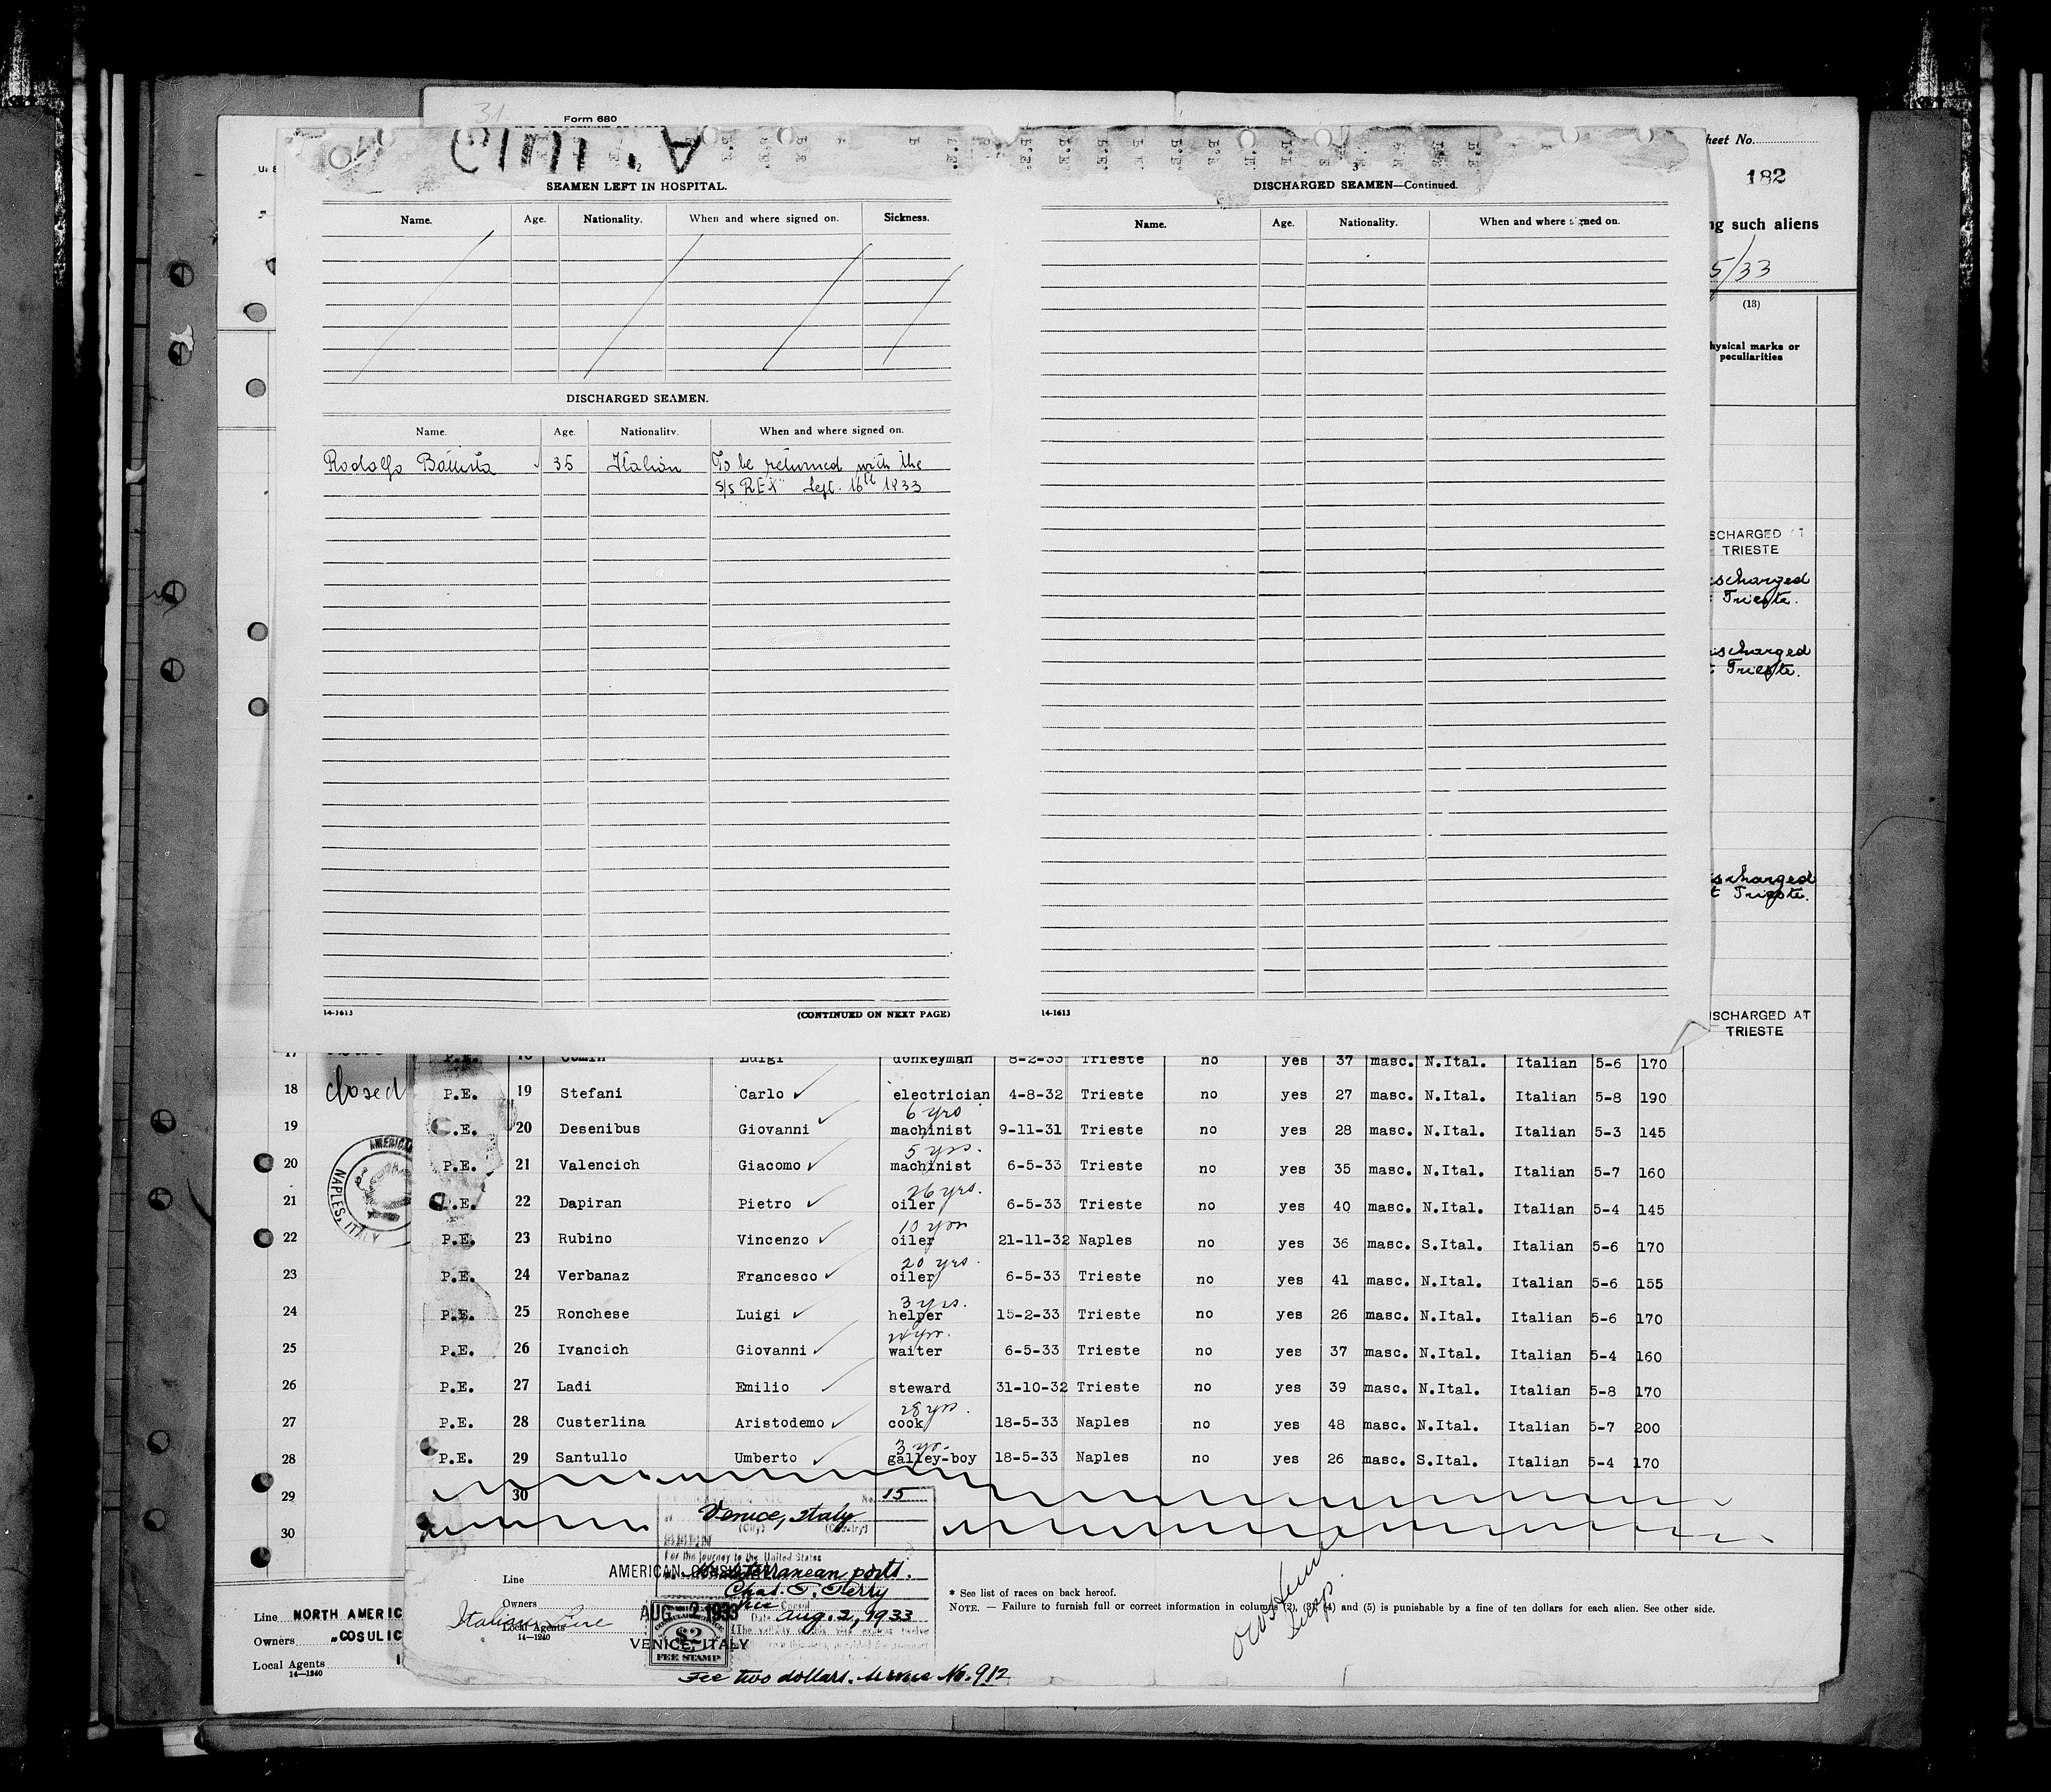 31
Form 680
Sheet No.
182
ng such aliens
5/33
(13)
hysical marks or
peculiarities
2
SEAMEN LEFT IN HOSPITAL.
Name. Age. Nationality. When and where signed on. Sickness.
DISCHARGED SEAMEN.
Name. Age. Nationality. When and where signed on.
Rodolfo Battista 35 Italian To be returned with the
s/s REX Sept. 16th 1933
14-1613 (CONTINUED ON NEXT PAGE)
3
DISCHARGED SEAMEN—Continued.
Name. Age. Nationality. When and where signed on.
14-1613
SCHARGED AT
TRIESTE
scharged
Trieste.
ischarged
t Trieste.
scharged
t Trieste.
ISCHARGED AT
TRIESTE
17 P.E. 18 Comin Luigi donkeyman 8-2-33 Trieste no yes 37 masc. N.Ital. Italian 5-6 170
18 closed P.E. 19 Stefani Carlo electrician 4-8-32 Trieste no yes 27 masc. N.Ital. Italian 5-8 190
6 yrs
19 .E. 20 Desenibus Giovanni machinist 9-11-31 Trieste no yes 28 masc. N.Ital. Italian 5-3 145
5 yrs.
20 P.E. 21 Valencich Giacomo machinist 6-5-33 Trieste no yes 35 masc. N.Ital. Italian 5-7 160
26 yrs.
21 P.E. 22 Dapiran Pietro oiler 6-5-33 Trieste no yes 40 masc. N.Ital. Italian 5-4 145
10 yrs
22 P.E. 23 Rubino Vincenzo oiler 21-11-32 Naples no yes 36 masc. S.Ital. Italian 5-6 170
20 yrs.
23 P.E. 24 Verbanaz Francesco oiler 6-5-33 Trieste no yes 41 masc. N.Ital. Italian 5-6 155
3 yrs.
24 P.E. 25 Ronchese Luigi helper 15-2-33 Trieste no yes 26 masc. N.Ital. Italian 5-6 170
yrs.
25 P.E. 26 Ivancich Giovanni waiter 6-5-33 Trieste no yes 37 masc. N.Ital. Italian 5-4 160
26 P.E. 27 Ladi Emilio steward 31-10-32 Trieste no yes 39 masc. N.Ital. Italian 5-8 170
28 yrs.
27 P.E. 28 Custerlina Aristodemo cook 18-5-33 Naples no yes 48 masc. N.Ital. Italian 5-7 200
3 yrs.
28 P.E. 29 Santullo Umberto galley-boy 18-5-33 Naples no yes 26 masc. S.Ital. Italian 5-4 170
29 30
30
AMERICAN
NAPLES, ITALY
No. 15
Venice, Italy
(City) (Country)
For the journey to the United States
AMERICAN CONSULATE
Mediterranean ports.
Chas. T. Terry
Vice Consul
AUG 2 1933
Date Aug. 2, 1933
VENICE, ITALY
$2
FEE STAMP
Fee two dollars. Service No. 912
Line
Owners
Italian Line
Local Agents
14—1240
* See list of races on back hereof.
NOTE. — Failure to furnish full or correct information in columns (2), (3), (4) and (5) is punishable by a fine of ten dollars for each alien. See other side.
Insp.
Line NORTH AMERIC
Owners "COSULIC
Local Agents I
14—1240